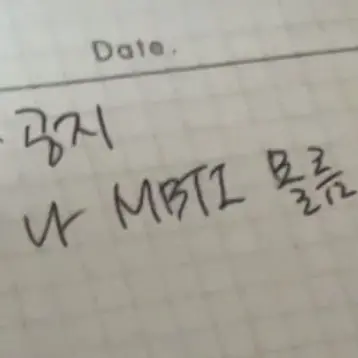 Date.
· 공지
나 MBTI